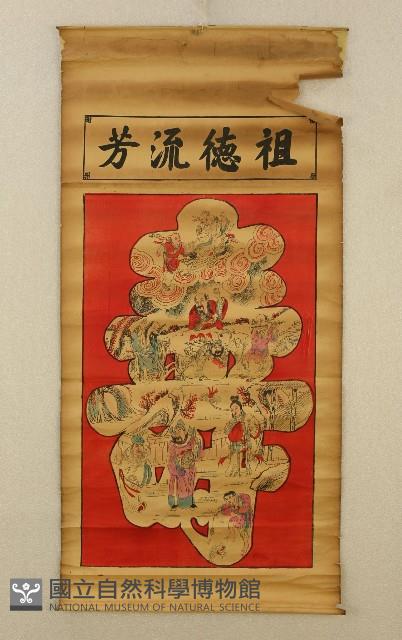 祖德流芳
壽
國立自然科學博物館
NATIONAL MUSEUM OF NATURAL SCIENCE